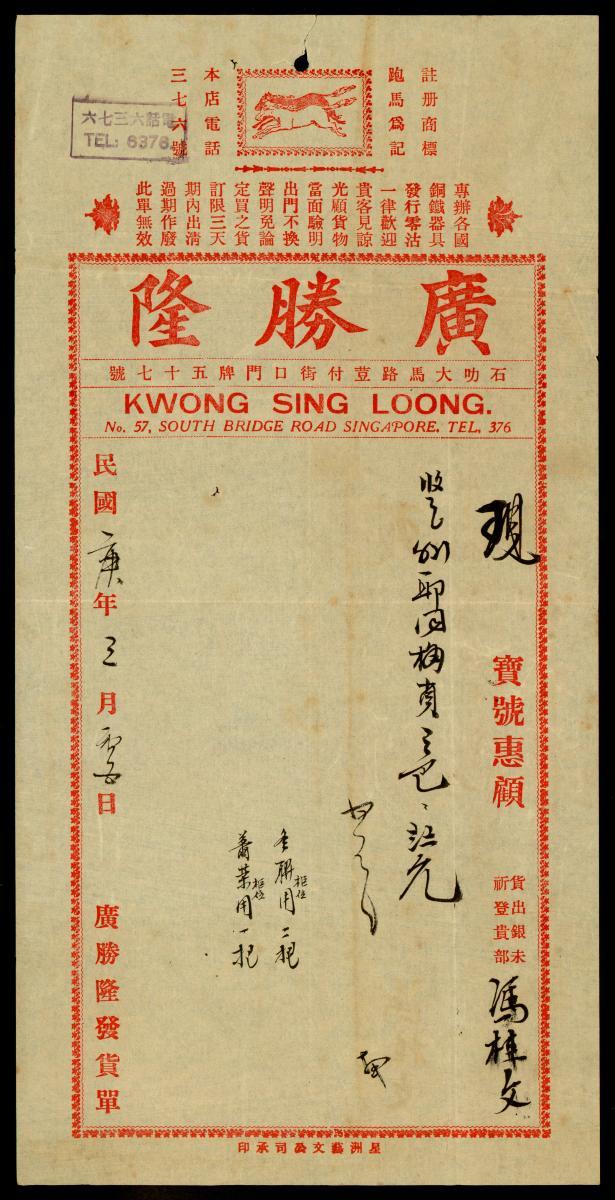 註册商標
跑馬爲記
本店電話
三七六號
電話六三七六
TEL: 6376
專辦各國
銅鐵器具
發行零沽
一律歡迎
貴客見諒
光顧貨物
當面驗明
出門不換
聲明免論
定買之貨
訂限三天
期內出清
過期作廢
此單無效
廣勝隆
石叻大馬路荳付街口門牌五十七號
KWONG SING LOONG.
No. 57, SOUTH BRIDGE ROAD SINGAPORE. TEL. 376
現
寶號惠顧
貨出銀未
祈登貴部
馮
文
用一把
柜位
用一把
柜位
民國庚年三月日
廣勝隆發貨單
星洲藝文公司承印